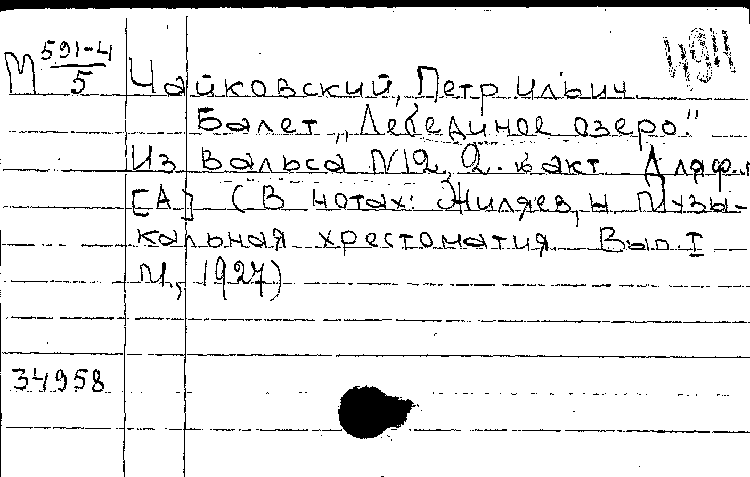 М 591-4/5 Чайковский, Петр Ильич 494
Балет „Лебединое озеро."
Из вальса N12, 2. акт Для ф.п
[А] (В нотах: Жиляев, Н Музы-
кальная хрестоматия Вып. I
М., 1927)
34958